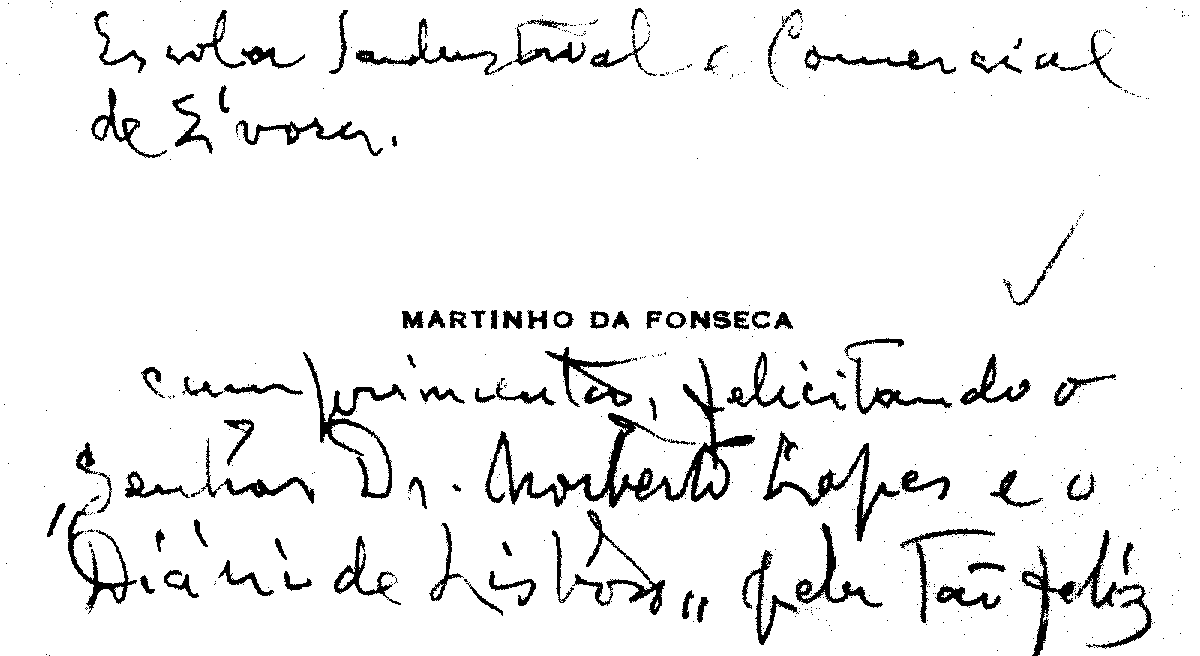 Escola Industrial e Comercial
de Évora.
MARTINHO DA FONSECA
cumprimentos, felicitando o
Senhor Dr. Norberto Lopes e o
"Diário de Lisboa" pela tão feliz